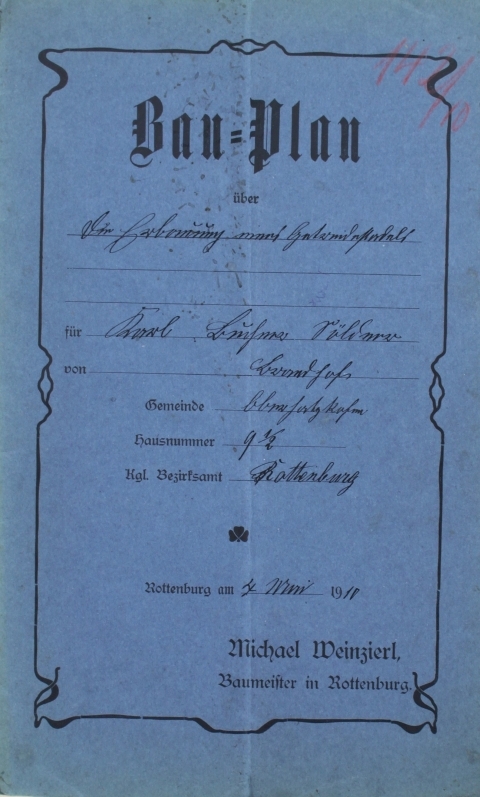 Bau=Plan
über
die Erbauung eines Getreidestadels
für Karl Buchner Söldner
von Brandhof
Gemeinde Oberhatzkofen
Hausnummer 9 1/2
Kgl. Bezirksamt Rottenburg
Rottenburg am 7 Mai 1910
Michael Weinzierl,
Baumeister in Rottenburg.